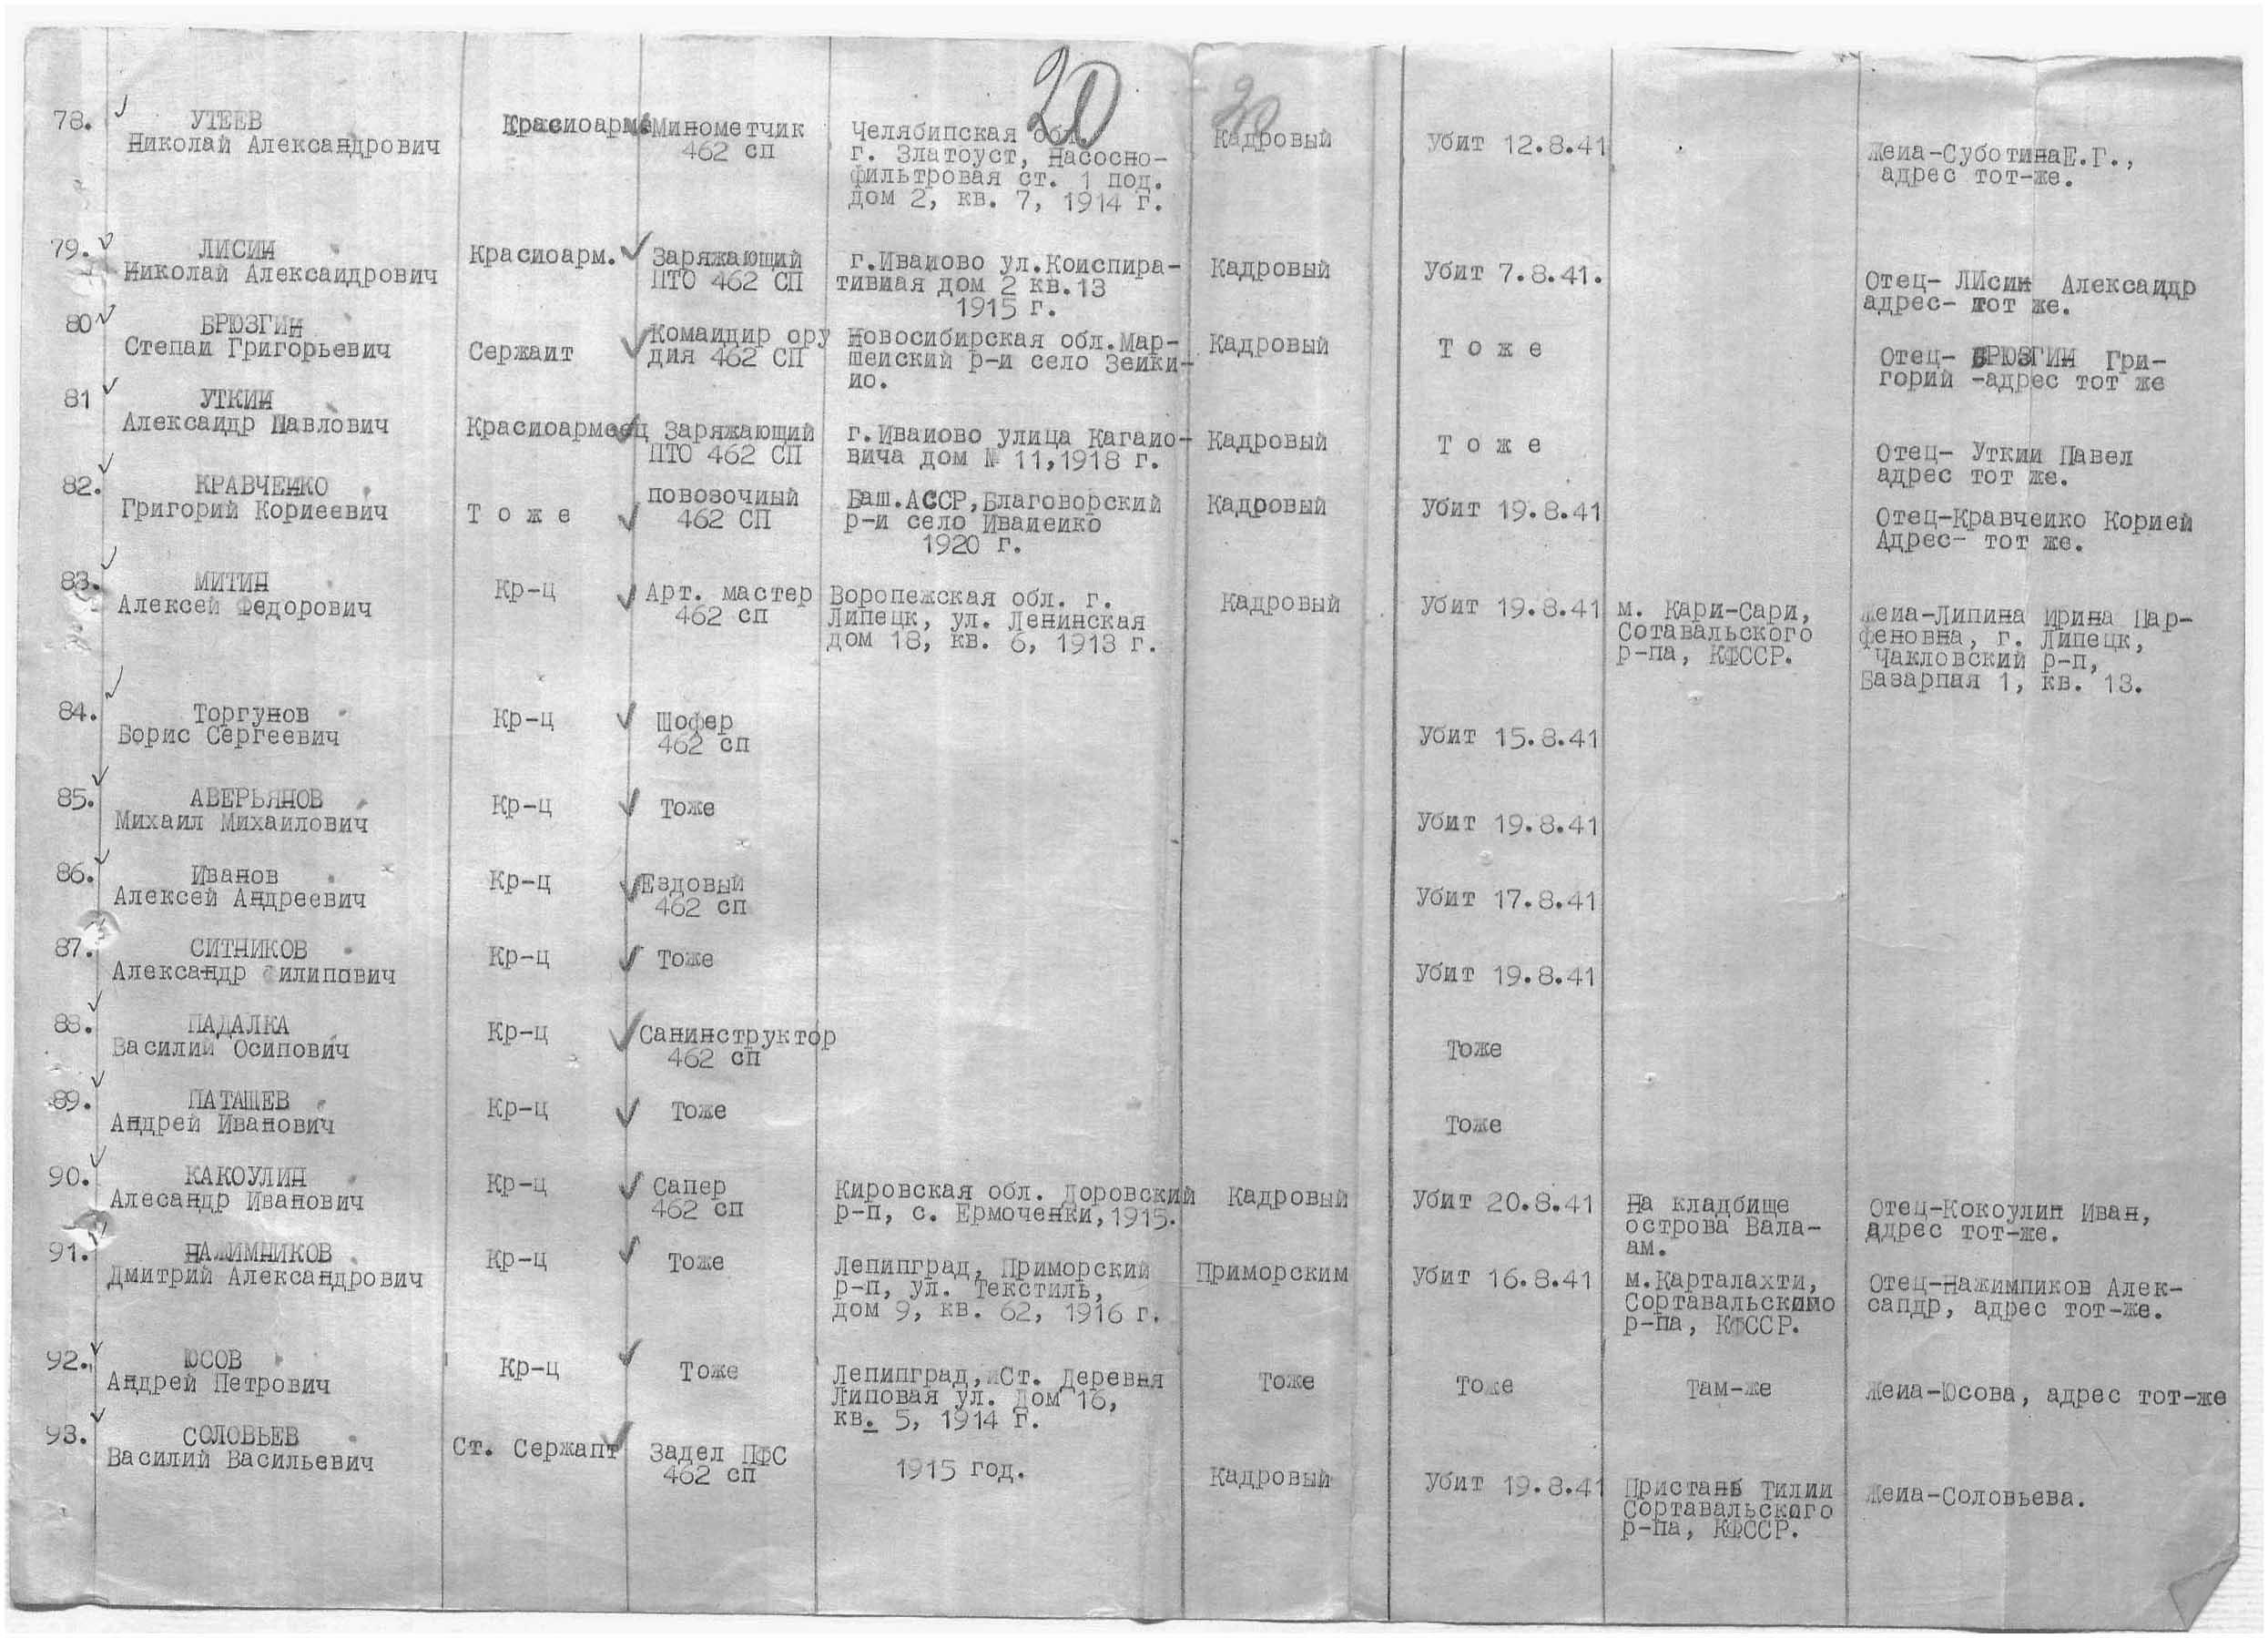 20
20
78.
УТЕЕВ
Николай Александрович
Красиоарме
Минометчик
462 сп
Челябипская обл.
г. Златоуст, Насосно-
фильтровая ст. 1 под.
дом 2, кв. 7, 1914 г.
Кадровый
Убит 12.8.41
Жеиа-СуботинаЕ.Г.,
адрес тот-же.
79.
ЛИСИН
Николай Алексаидрович
Красиоарм.
Заряжающий
ПТО 462 СП
г.Иваиово ул.Коиспира-
тивиая дом 2 кв.13
1915 г.
Кадровый
Убит 7.8.41.
Отец- ЛИсин Алексаидр
адрес- тот же.
80
БРЮЗГИН
Степаи Григорьевич
Сержаит
Комаидир ору
дия 462 СП
Новосибирская обл.Мар-
шеиский р-и село Зеики-
ио.
Кадровый
Т о ж е
Отец- БРЮЗГИН Гри-
горий -адрес тот же
81
УТКИН
Алексаидр Павлович
Красиоармеец
Заряжающий
ПТО 462 СП
г.Иваиово улица Кагаио-
вича дом № 11,1918 г.
Кадровый
Т о ж е
Отец- Уткии Павел
адрес тот же.
82.
КРАВЧЕНКО
Григорий Кориеевич
Т о ж е
повозочиый
462 СП
Баш.АССР,Благоворский
р-и село Иваиеико
1920 г.
Кадровый
Убит 19.8.41
Отец-Кравчеико Корией
Адрес- тот же.
83.
МИТИН
Алексей Федорович
Кр-ц
Арт. мастер
462 сп
Воропежская обл. г.
Липецк, ул. Ленинская
дом 18, кв. 6, 1913 г.
Кадровый
Убит 19.8.41
м. Кари-Сари,
Сотавальского
р-па, КФССР.
Жеиа-Липина Ирина Пар-
феновна, г. Липецк,
Чакловский р-п,
Базарпая 1, кв. 13.
84.
Торгунов
Борис Сергеевич
Кр-ц
Шофер
462 сп
Убит 15.8.41
85.
АВЕРЬЯНОВ
Михаил Михаилович
Кр-ц
Тоже
Убит 19.8.41
86.
Иванов
Алексей Андреевич
Кр-ц
Ездовый
462 сп
Убит 17.8.41
87.
СИТНИКОВ
Александр Филипович
Кр-ц
Тоже
Убит 19.8.41
88.
ПАДАЛКА
Василий Осипович
Кр-ц
Санинструктор
462 сп
Тоже
89.
ПАТАШЕВ
Андрей Иванович
Кр-ц
Тоже
Тоже
90.
КАКОУЛИН
Алесандр Иванович
Кр-ц
Сапер
462 сп
Кировская обл. Доровский
р-п, с. Ермоченки,1915.
Кадровый
Убит 20.8.41
На кладбище
острова Вала-
ам.
Отец-Кокоулип Иван,
адрес тот-же.
91.
НАЖИМНИКОВ
Дмитрий Александрович
Кр-ц
Тоже
Лепипград, Приморский
р-п, ул. Текстиль,
дом 9, кв. 62, 1916 г.
Приморским
Убит 16.8.41
м.Карталахти,
Сортавальскипо
р-па, КФССР.
Отец-Нажимпиков Алек-
сапдр, адрес тот-же.
92.
ЮСОВ
Андрей Петрович
Кр-ц
Тоже
Лепипград, Ст. Деревня
Липовая ул. Дом 16,
кв. 5, 1914 г.
Тоже
Тоже
Там-же
Жеиа-Юсова, адрес тот-же
93.
СОЛОВЬЕВ
Василий Васильевич
Ст. Сержапт
Задел ПФС
462 сп
1915 год.
Кадровый
Убит 19.8.41
Пристань Тилии
Сортавальского
р-па, КФССР.
Жеиа-Соловьева.